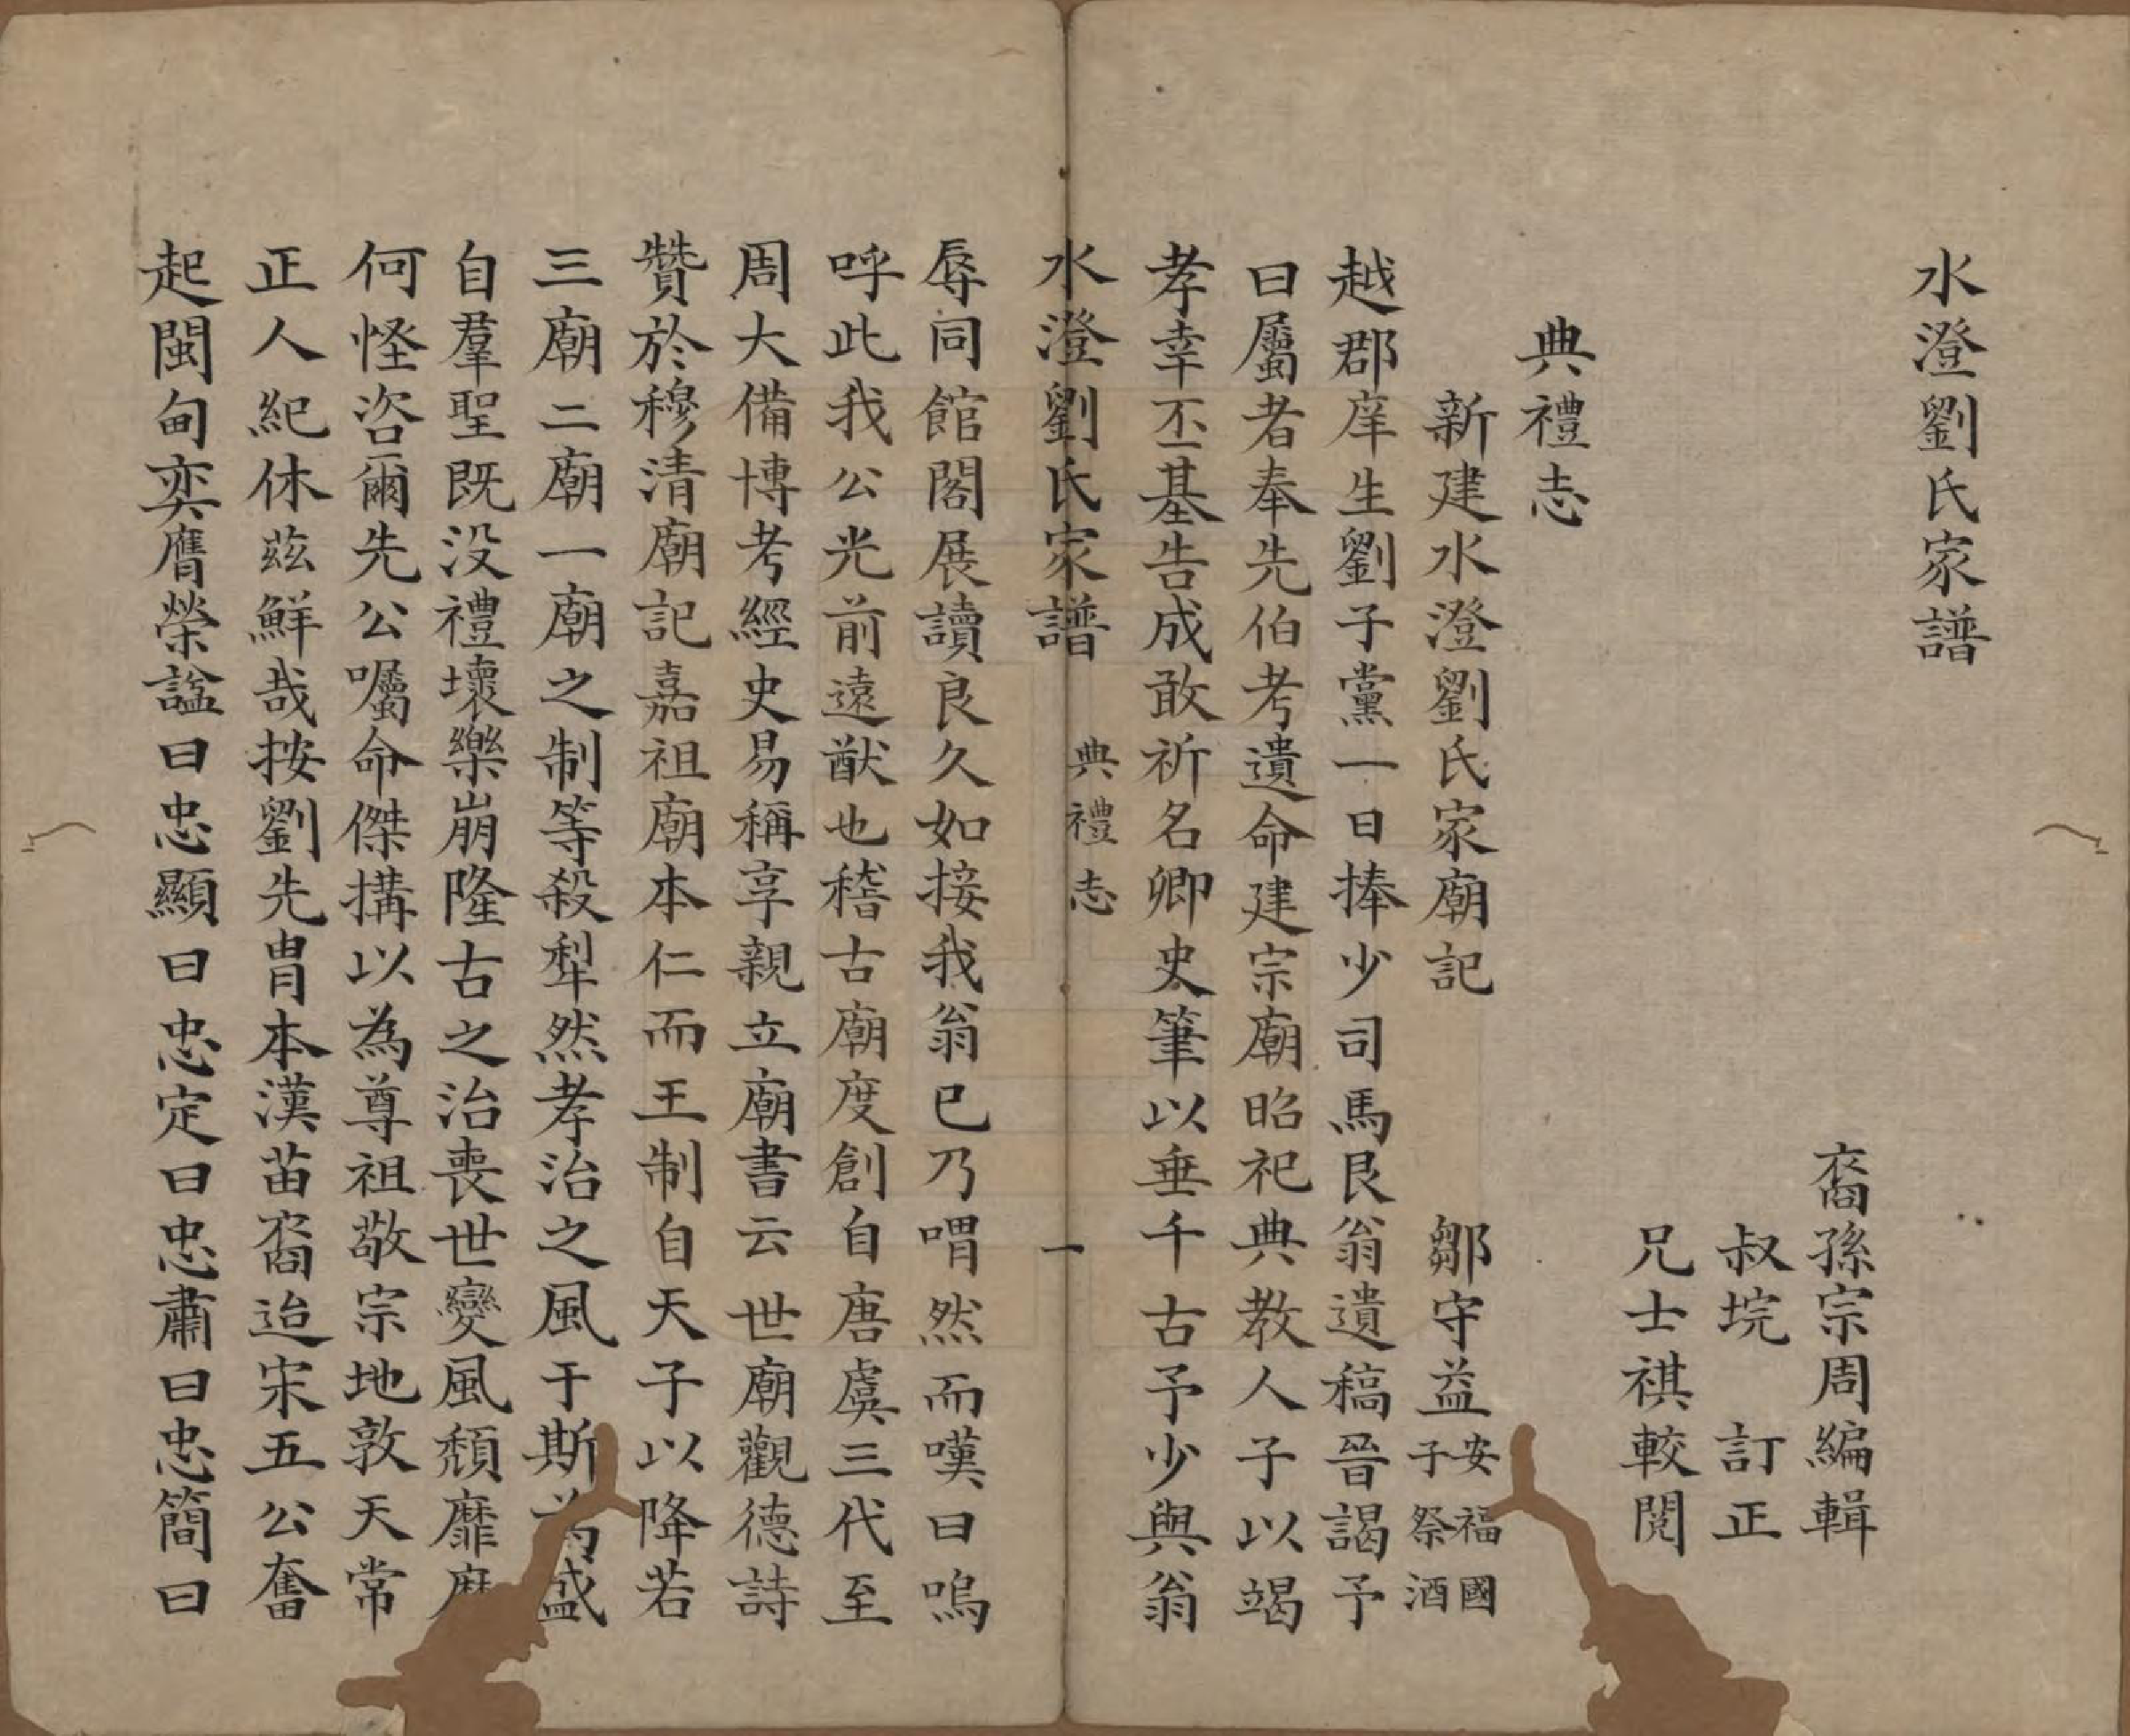 水澄劉氏家譜
裔孫宗周編輯
叔垸　訂正
兄士祺較閱
典禮志
新建水澄劉氏家廟記　鄒守益安福國子祭酒
越郡庠生劉子黨一日捧少司馬艮翁遺稿晉謁予
曰屬者奉先伯考遺命建宗廟昭祀典教人子以竭
孝幸丕基告成敢祈名卿史筆以垂千古予少與翁
水澄劉氏家譜　典禮志　一
辱同館閣展讀良久如接我翁已乃喟然而嘆曰嗚
呼此我公光前遠猷也稽古廟度創自唐虞三代至
周大備博考經史易稱享親立廟書云世廟觀德詩
贊於穆清廟記嘉祖廟本仁而王制自天子以降若
三廟二廟一廟之制等殺犁然孝治之風于斯為盛
自羣聖既没禮壞樂崩隆古之治喪世變風頹靡
何怪咨爾先公囑命傑搆以為尊祖敬宗地敦天常
正人紀休茲鮮哉按劉先胄本漢苗裔迨宋五公奮
起閩甸奕膺榮諡曰忠顯曰忠定曰忠肅曰忠簡曰